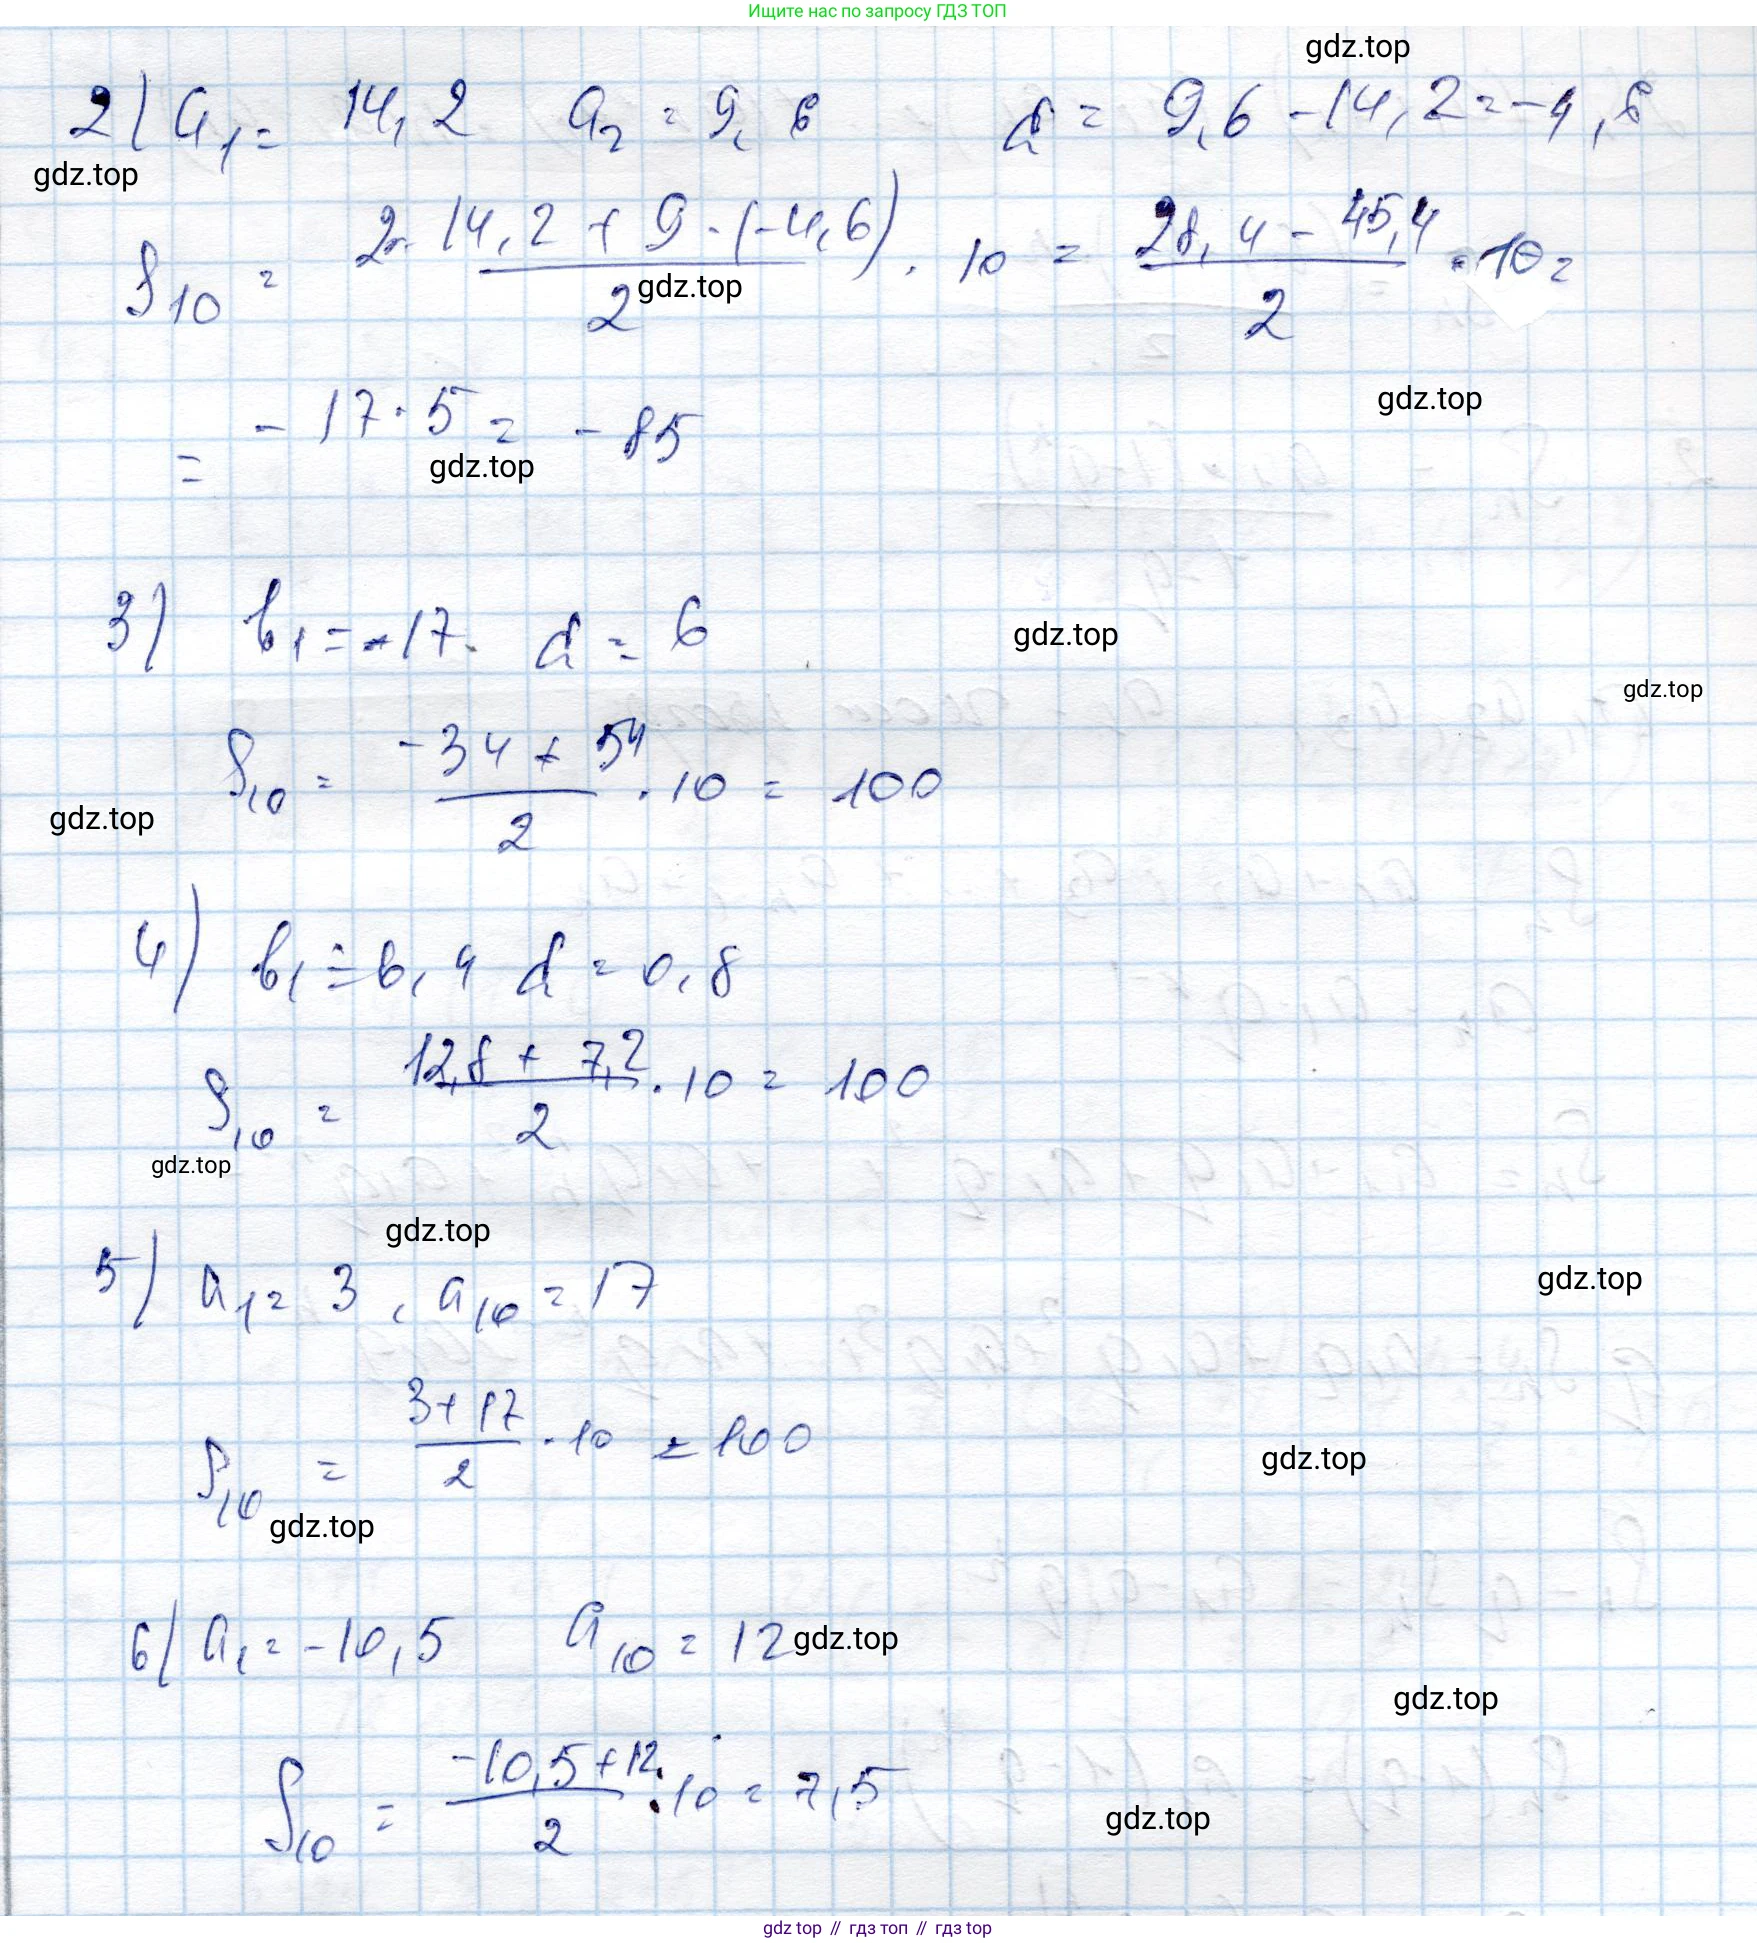 Ищите нас по запросу ГДЗ ТОП
gdz.top
2) a₁ = 14,2 a₂ = 9,6 d = 9,6 - 14,2 = -4,6
gdz.top
S₁₀ = (2·14,2 + 9·(-4,6))/2 · 10 = (28,4 - 45,4)/2 · 10 =
gdz.top
gdz.top
= -17·5 = -85
gdz.top
3) b₁ = -17. d = 6
gdz.top
gdz.top
S₁₀ = (-34 + 54)/2 · 10 = 100
gdz.top
4) b₁ = 6,4 d = 0,8
S₁₀ = (12,8 + 7,2)/2 · 10 = 100
gdz.top
gdz.top
5) a₁ = 3, a₁₀ = 17
gdz.top
S₁₀ = (3 + 17)/2 · 10 = 100
gdz.top
gdz.top
6) a₁ = -10,5 a₁₀ = 12
gdz.top
gdz.top
S₁₀ = (-10,5 + 12)/2 · 10 = 7,5
gdz.top
gdz top // гдз топ // гдз top